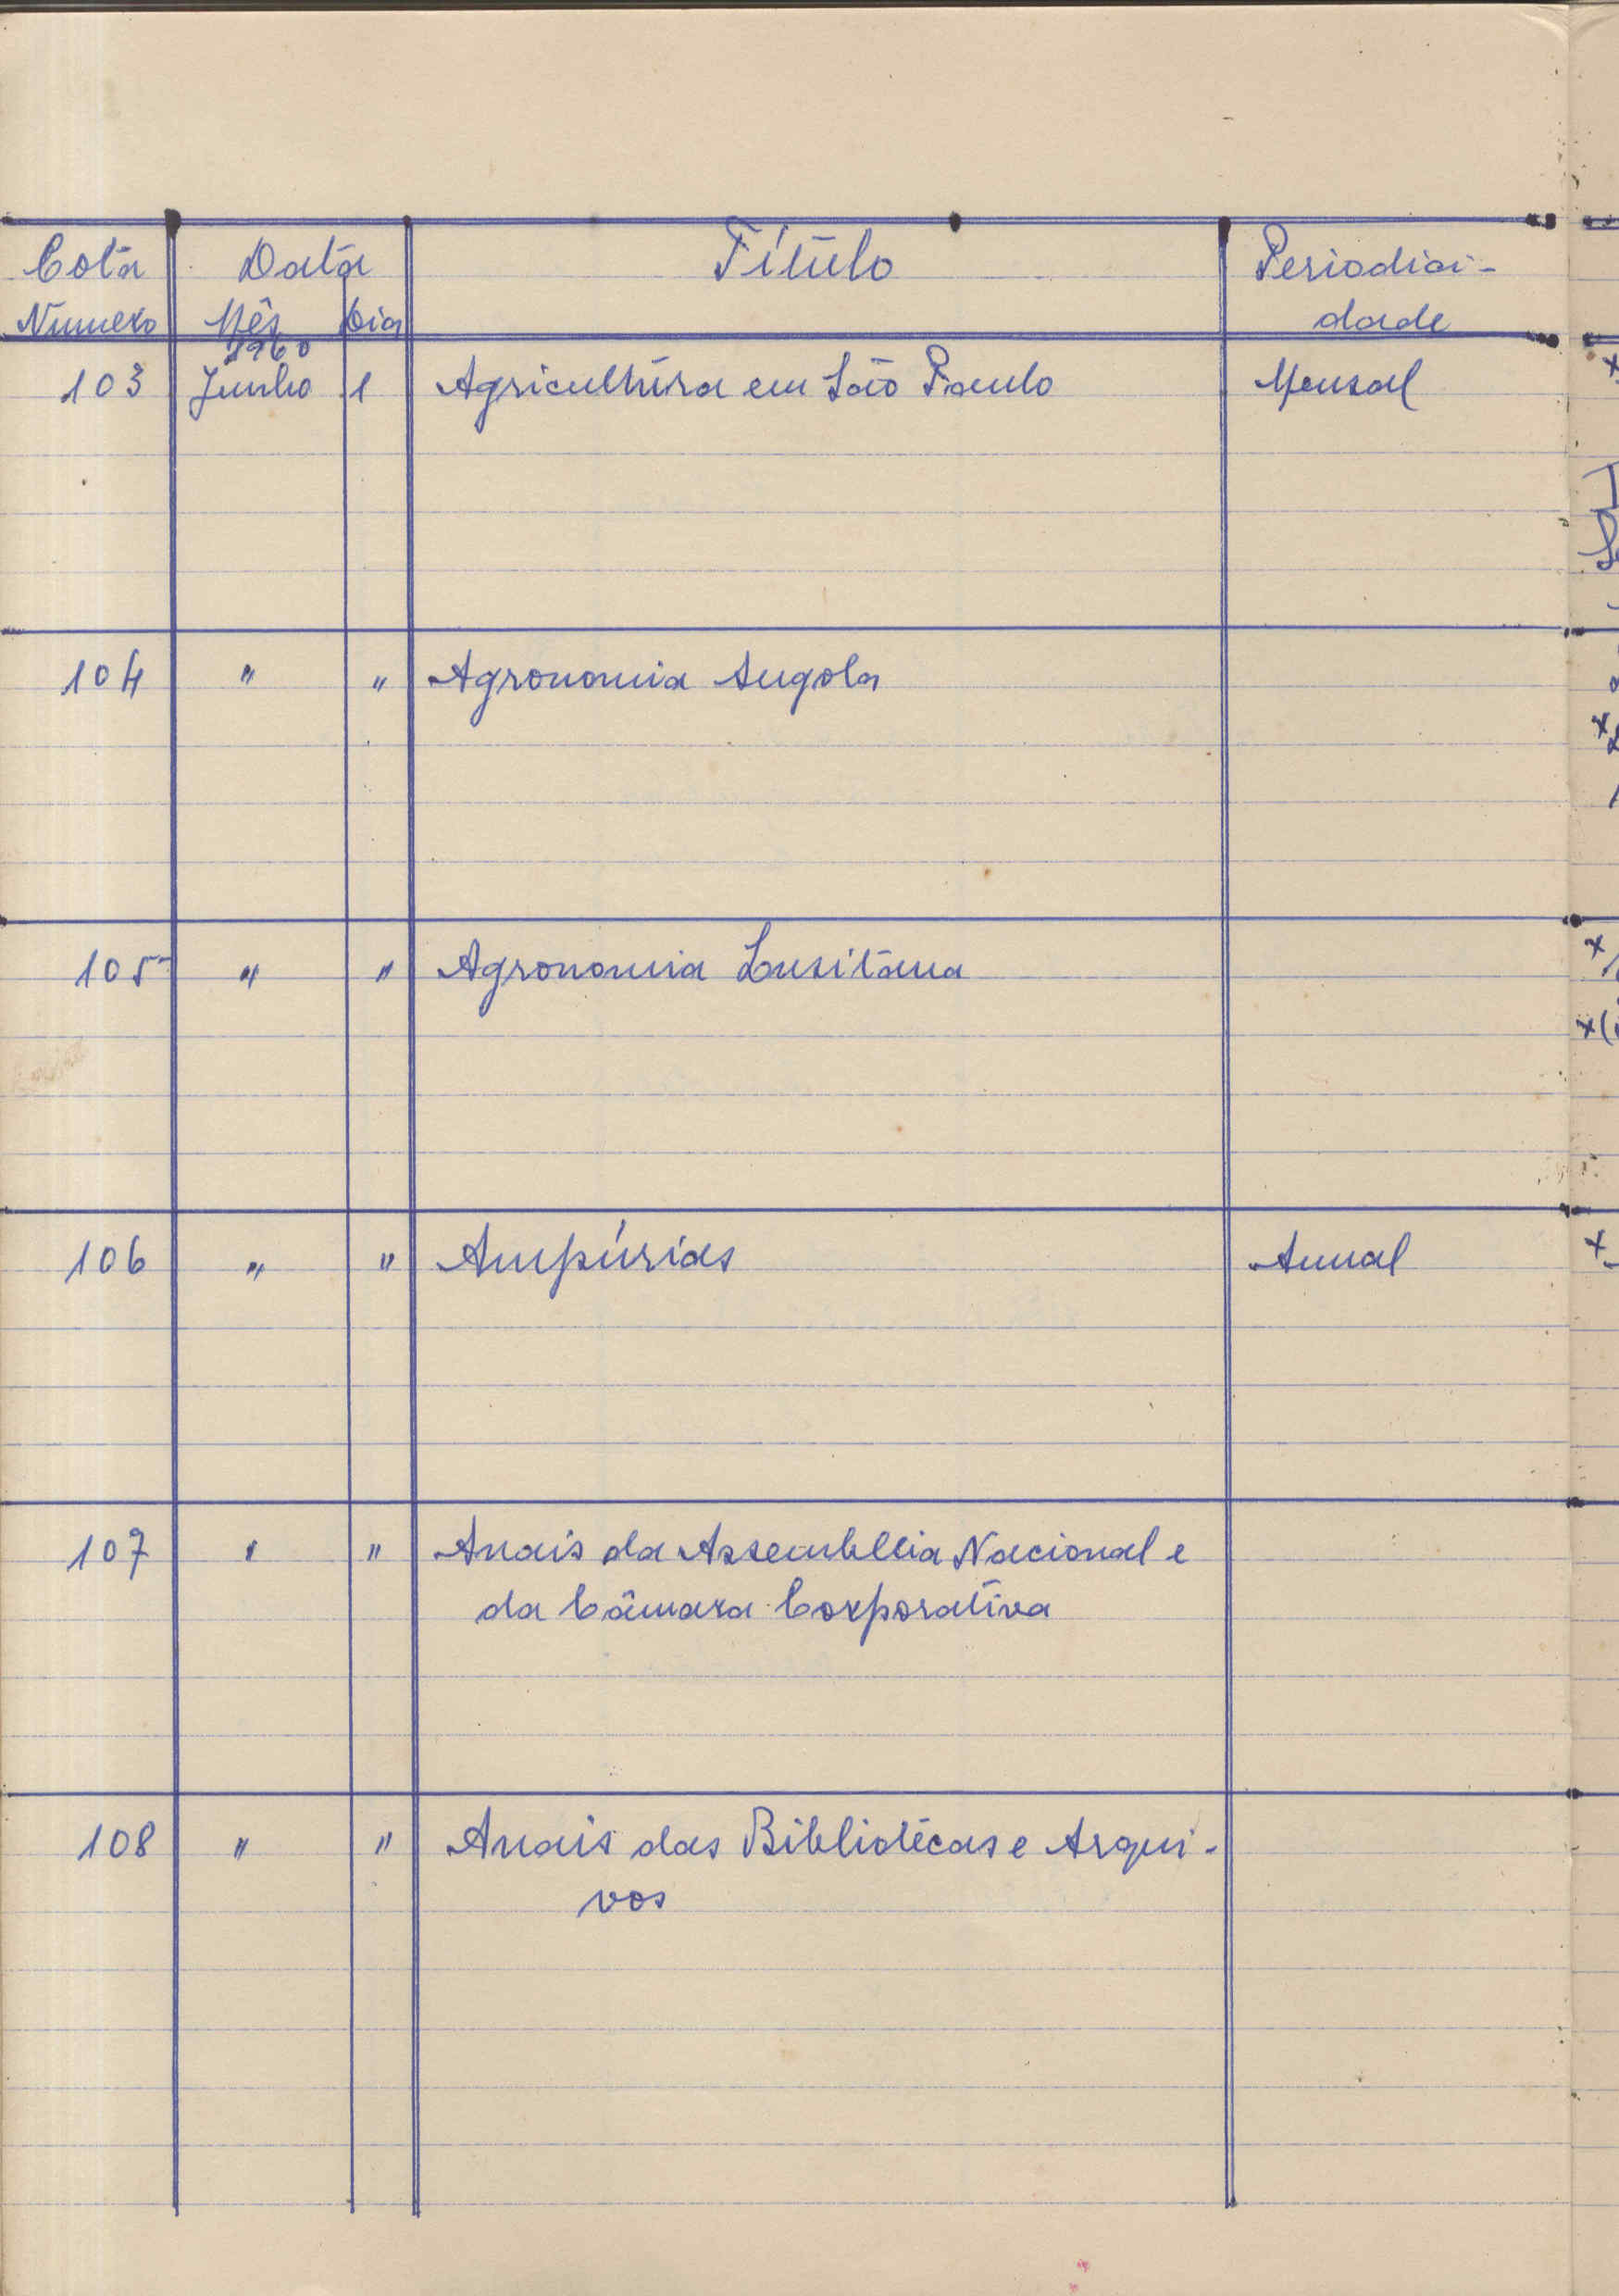 Cota Data Título Periodici-
Numero Mês Dia dade
1960
103 Junho 1 Agricultura em São Paulo Mensal
104 " " Agronomia Angola
105 " " Agronomia Lusitana
106 " " Ampúrias Anual
107 " " Anais da Assembleia Nacional e
da Câmara Corporativa
108 " " Anais das Bibliotécas e Arqui-
vos